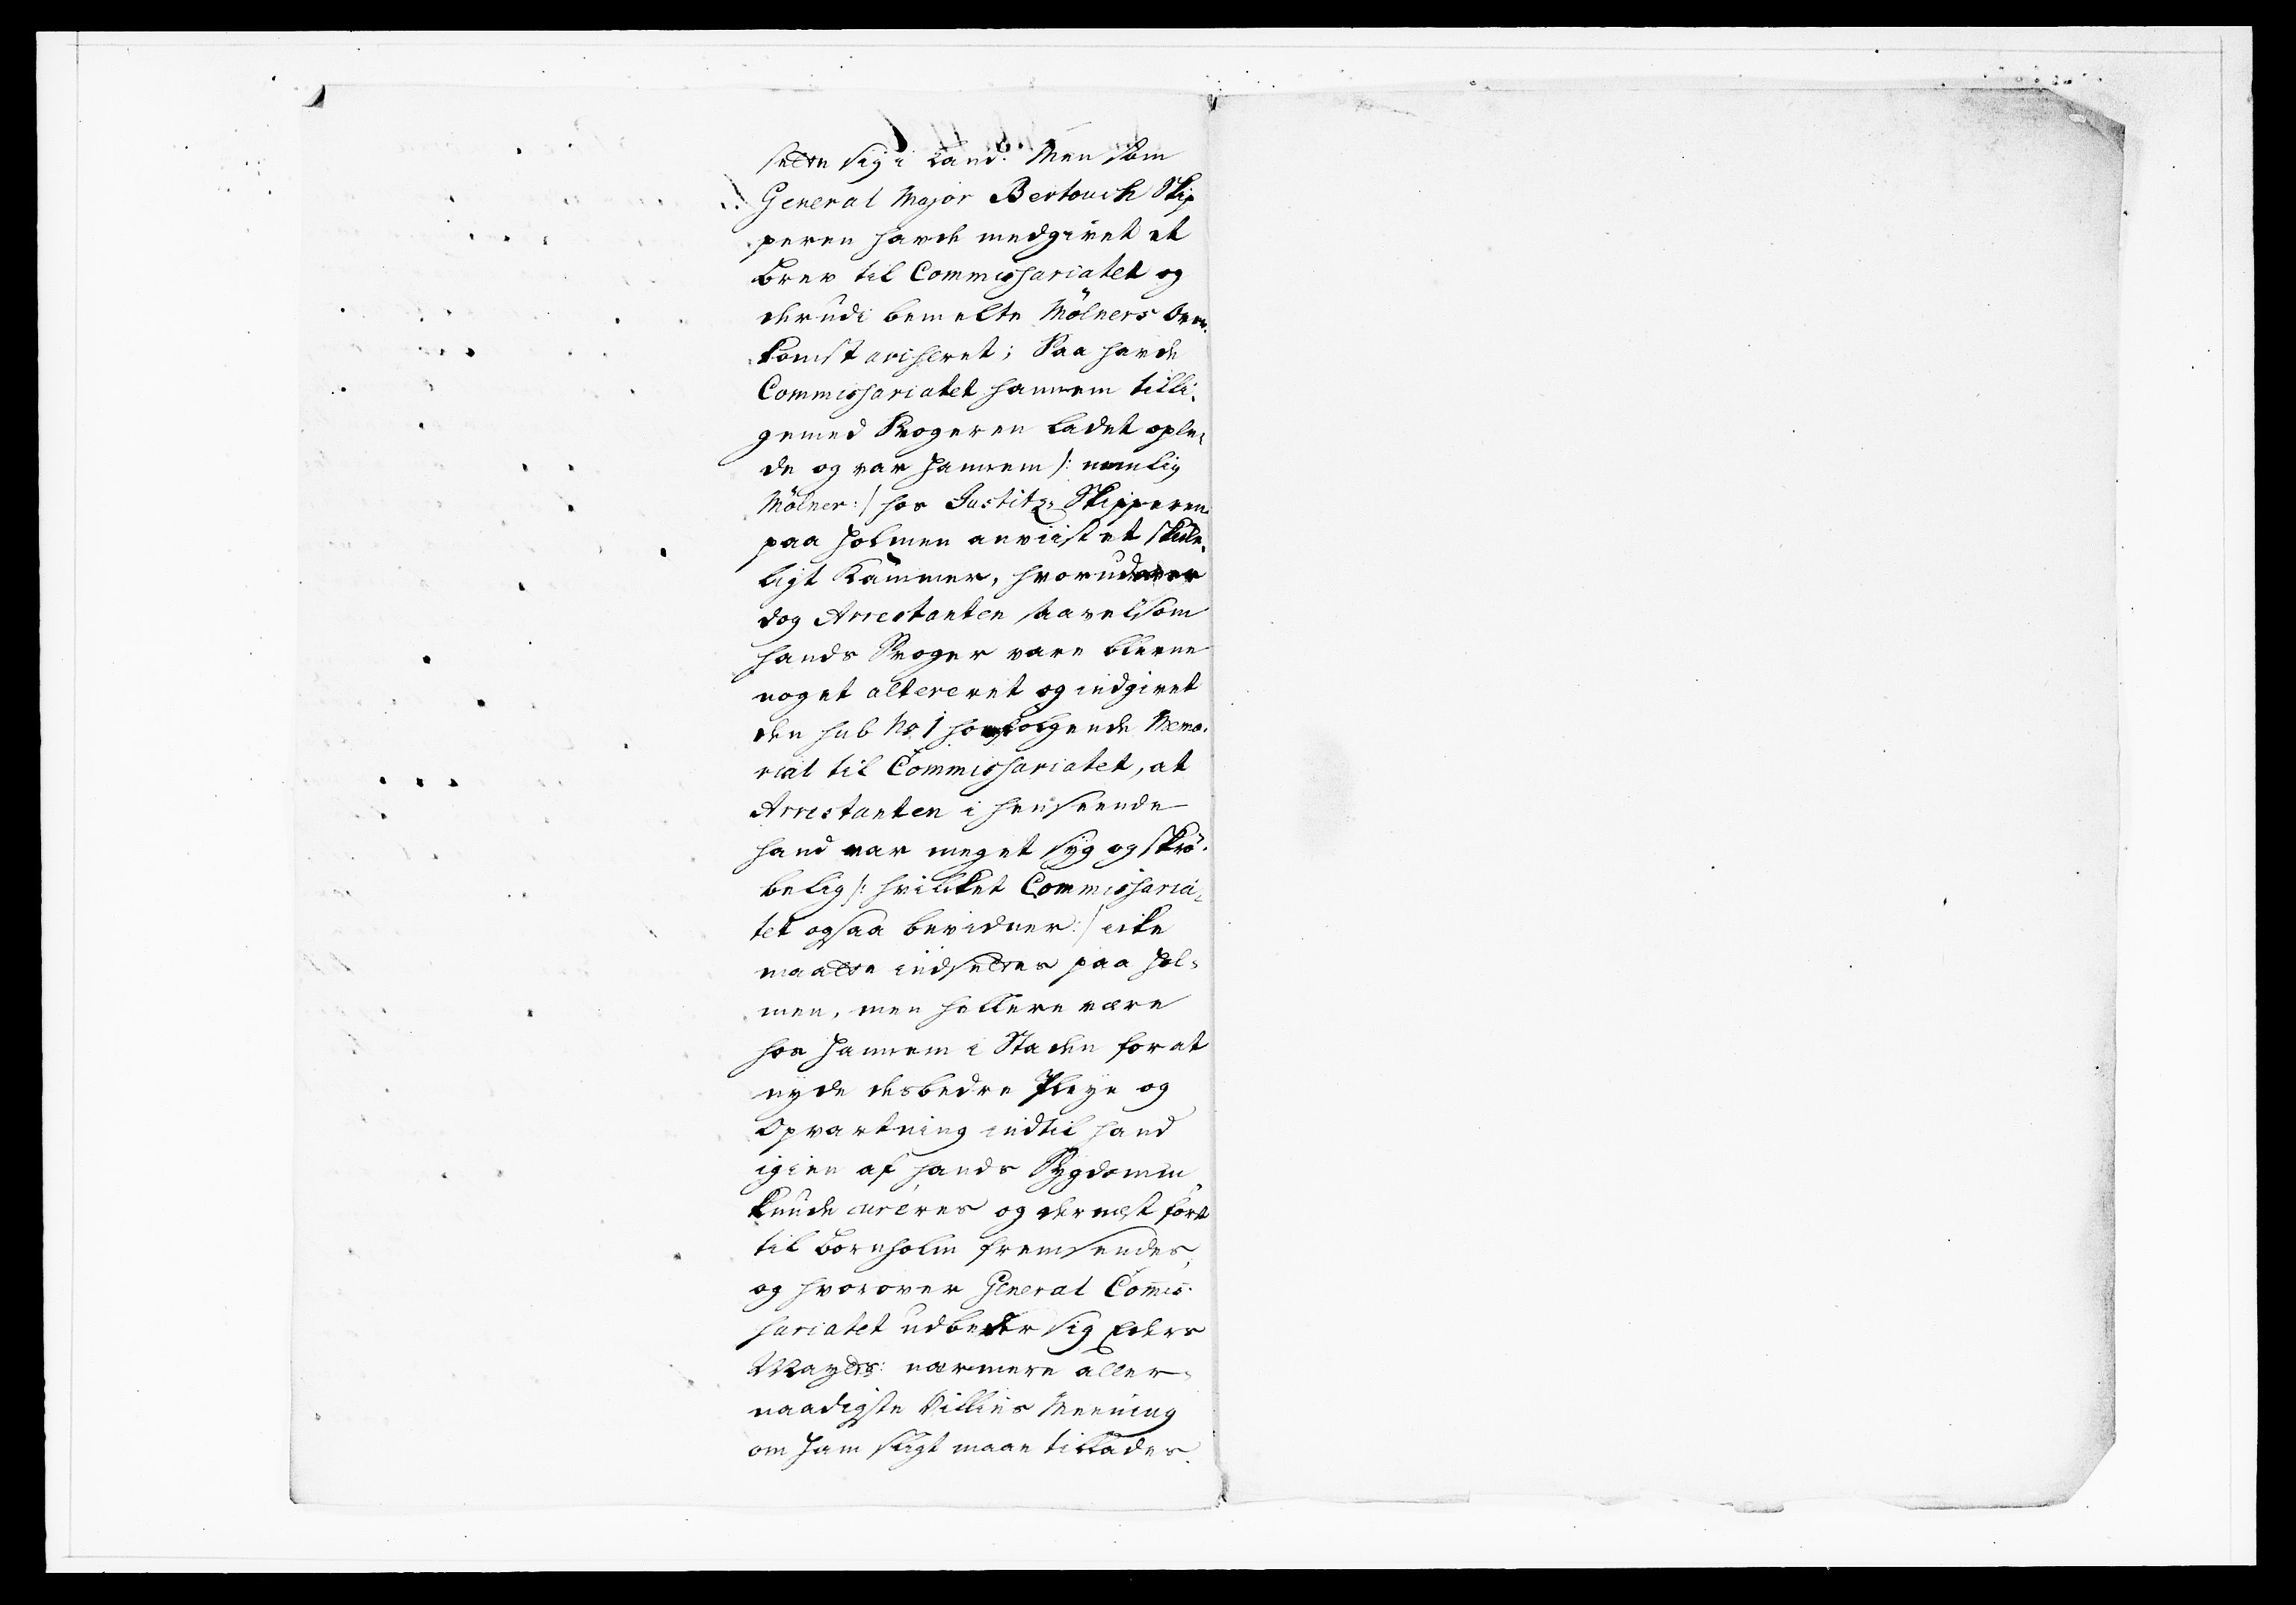 sette sig i Land. Men som
General Major Bertouch Skip
peren havde medgivet et
brev til Commissariatet og
derudi bemelte Mölners Over¬
komst aviseret; Saa havde
Commissariatet hannem tilli¬
gemed Svogeren ladet ople¬
de og var Hannem /: nemlig
Mölner :/ hos Justitz Skipperen
paa Holmen anviist et skik¬
ligt Kammer, hvorudover
dog Arrestanten saavelsom
hands Svoger vare blevne
noget altereret og indgivet
den sub No 1 hosfölgende Memo¬
rial til Commissariatet, at
Arrestanten i henseende
hand var meget syg og skrö¬
belig /: hvilket Commissaria¬
tet ogsaa bevidner :/ eike
maatte indsettes paa Hol¬
men, men hellere være
hos Hannem i Staden for at
nyde desbedre Pleye og
Opvartning indtil hand
igien af hands Sygdomm
kunde cureres og dernest fört
til Bornholm fremsendes,
og hvorover General Commis¬
sariatet udbeder sig Eders
Mayts: nærmere aller¬
naadigste Villies Meening
om Ham sligt maae tillades.